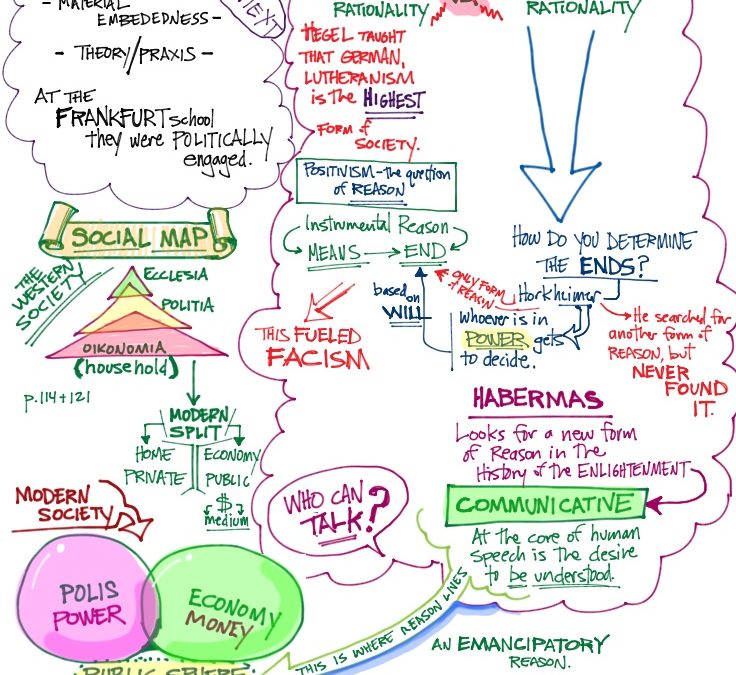 - MATERIAL
EMBEDEDNESS -
- THEORY/PRAXIS -
AT THE
FRANKFURT school
they were POLITICALLY
engaged.
SOCIAL MAP
THE
WESTERN
SOCIETY
ECCLESIA
POLITIA
OIKONOMIA
(household)
p.114+121
MODERN
SPLIT
HOME
PRIVATE
ECONOMY
PUBLIC
$
medium
MODERN
SOCIETY
POLIS
POWER
ECONOMY
MONEY
PUBLIC SPHERE
RATIONALITY
HEGEL TAUGHT
THAT GERMAN,
LUTHERANISM
is the HIGHEST
FORM of
SOCIETY.
POSITIVISM - the question
of REASON
Instrumental Reason
MEANS → END
THIS FUELED
FACISM
based
on
WILL
RATIONALITY
HOW DO YOU DETERMINE
THE ENDS?
Horkheimer
ONLY FORM
of REASON
whoever is in
POWER gets
to decide.
He searched for
another form of
REASON, but
NEVER
FOUND
IT.
HABERMAS
Looks for a new form
of Reason in the
History of the ENLIGHTENMENT
COMMUNICATIVE
At the core of human
speech is the desire
to be understood.
WHO CAN
TALK?
THIS IS WHERE REASON LIVES
AN EMANCIPATORY
REASON.